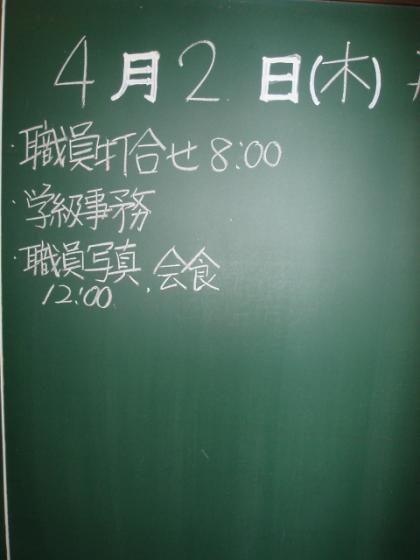 4月2日(木)
・職員打合せ 8:00
・学級事務
・職員写真、会食
12:00